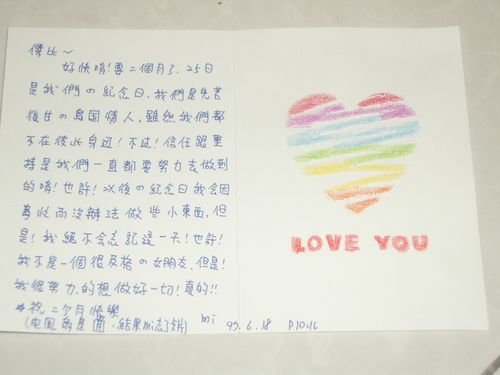 傑比~
好快唷!要二個月了,25日
是我們の紀念日,我們是先苦
後甘の島国情人,雖然我們都
不在彼此身辺!不过!信任跟堅
持是我們一直都要努力去做到
的唷!也許!以後の紀念日我会因
專收而沒辦法做些小東西,但
是!我絕不会忘記這一天!也許!
我不是一個很及格の女朋友,但是!
我很努力的想做好一切!真的!!
祝二个月快樂
mi 97.6.18 P10:16
LOVE YOU